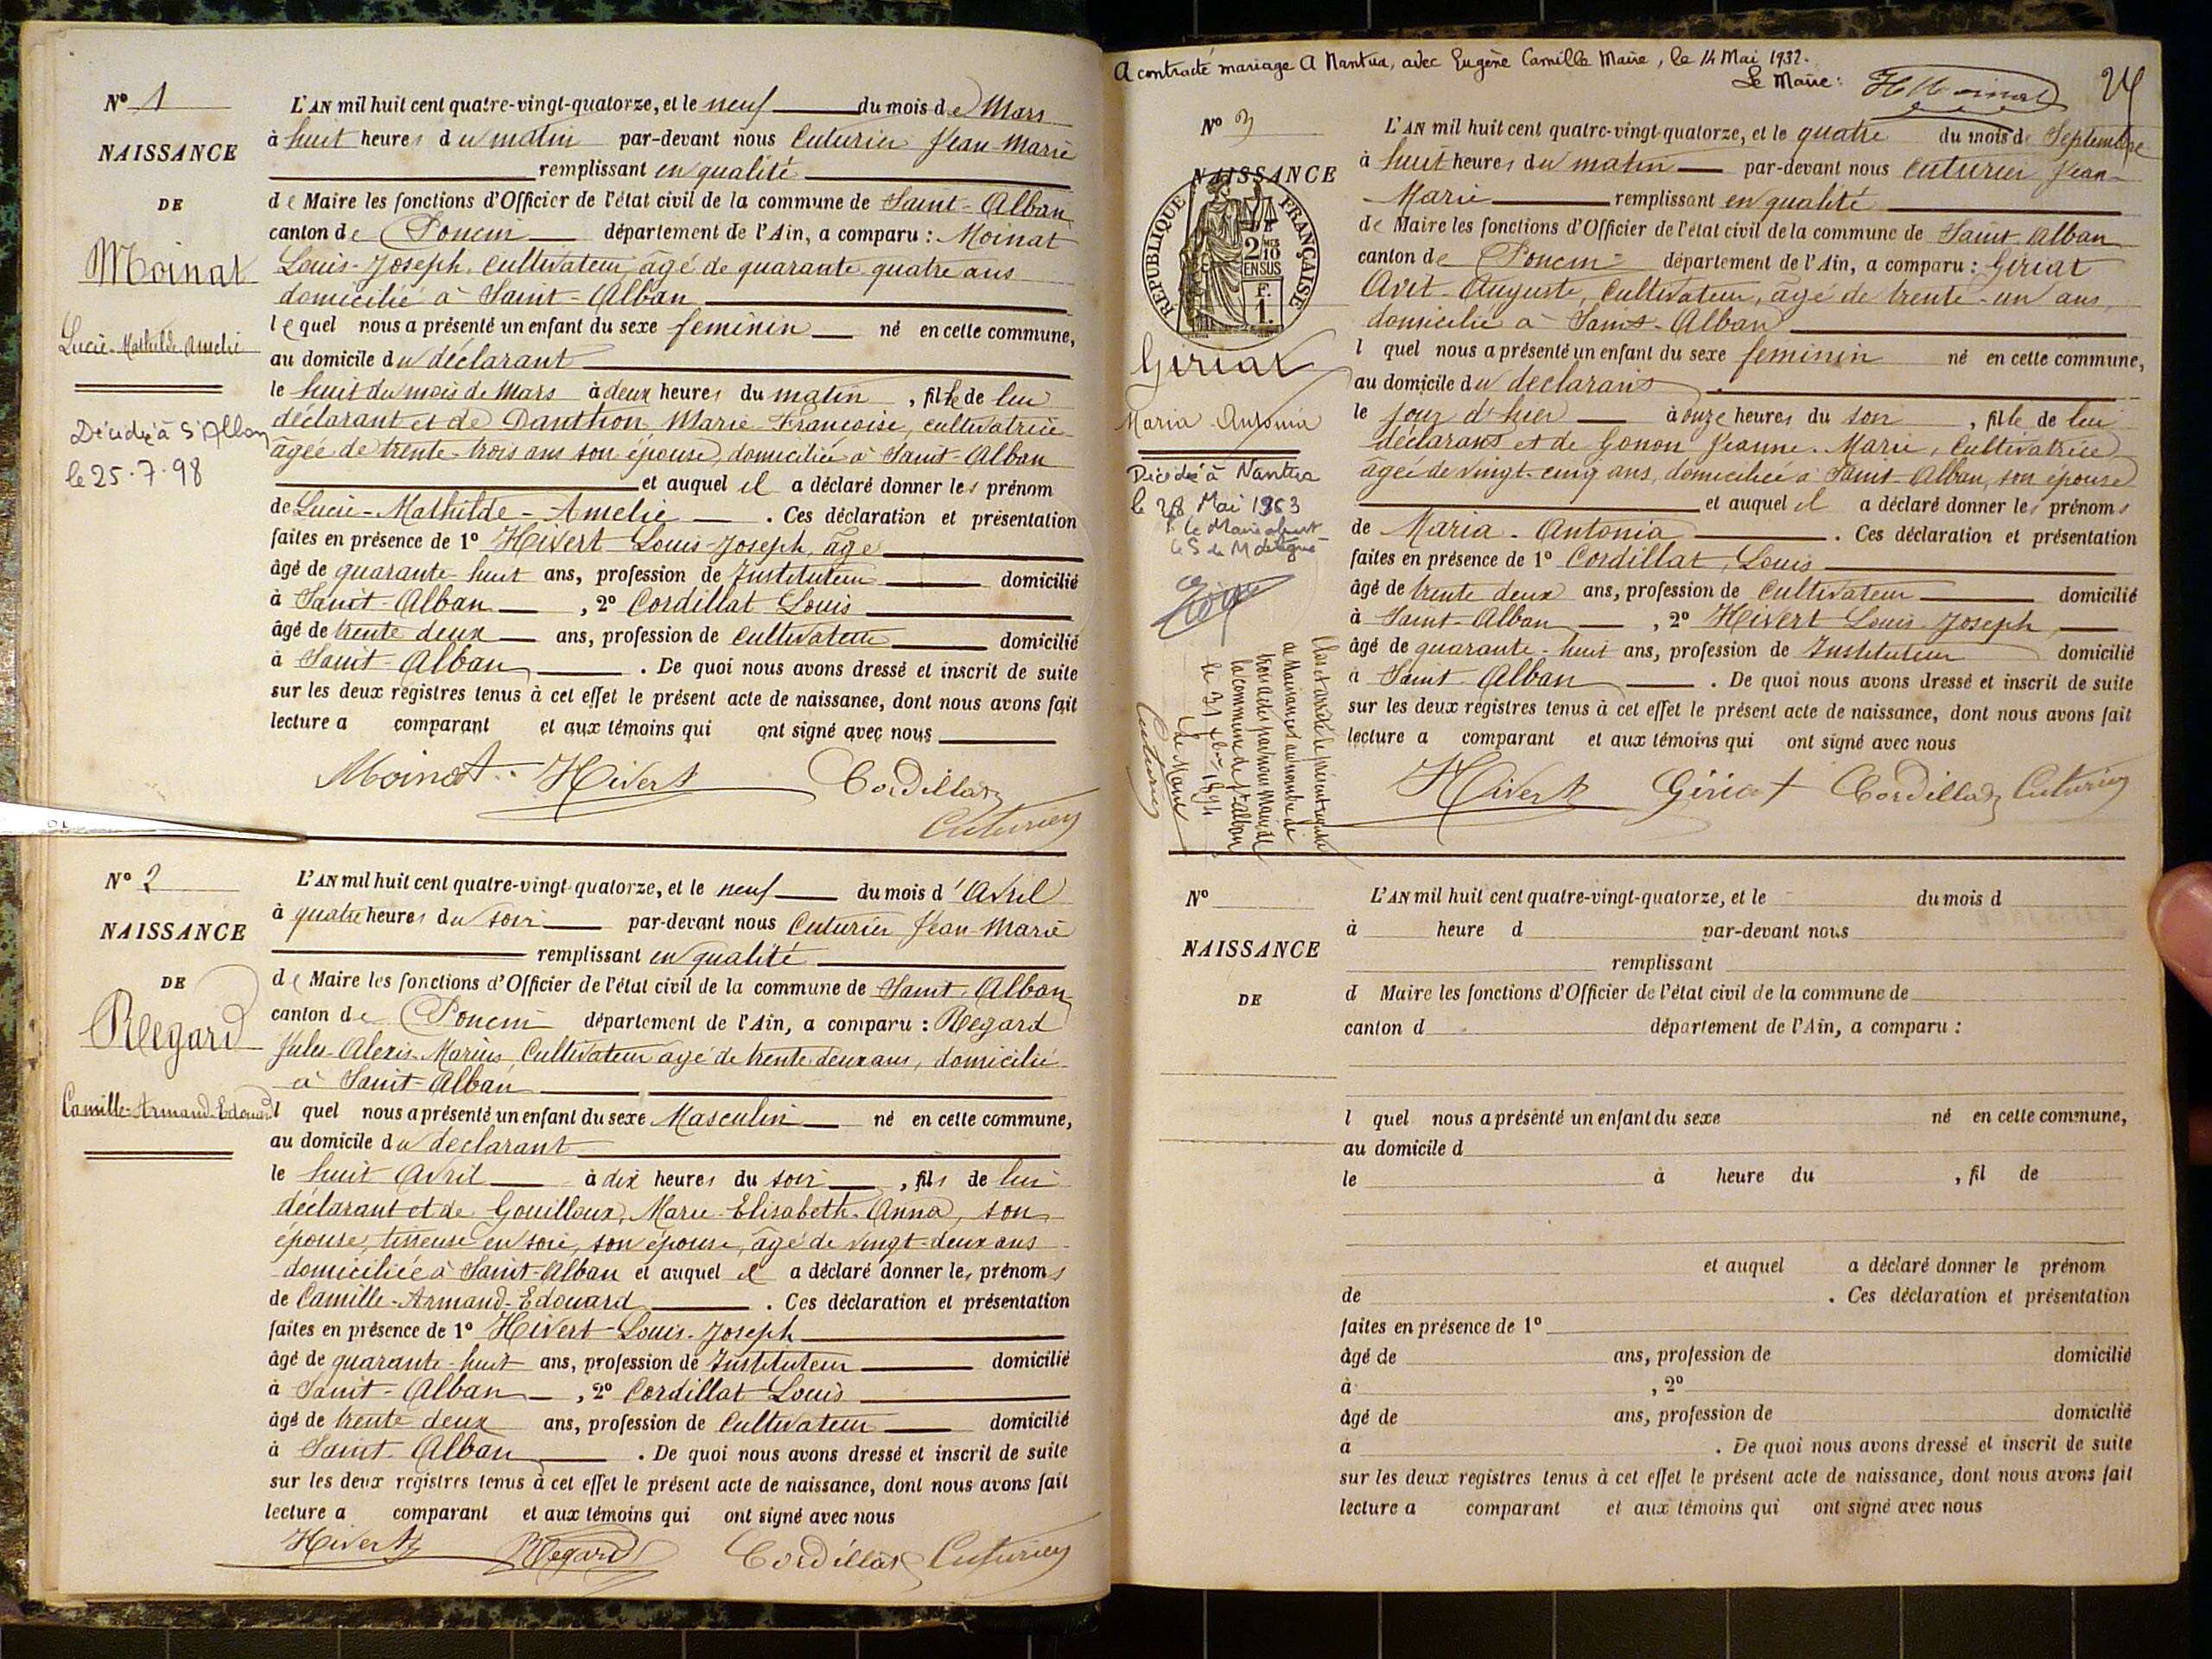 Nº 1
NAISSANCE
DE
Moinat
Lucie-Mathilde-Amélie
Décédée à St Alban
le 25.7.98
L'AN mil huit cent quatre-vingt-quatorze, et le neuf du mois de Mars
à huit heures du matin par-devant nous Cuturier Jean-Marie
remplissant en qualité
de Maire les fonctions d'Officier de l'état civil de la commune de Saint-Alban
canton de Poncin département de l'Ain, a comparu : Moinat
Louis-Joseph, cultivateur, âgé de quarante quatre ans
domicilié à Saint-Alban
lequel nous a présenté un enfant du sexe feminin né en cette commune,
au domicile du déclarant
le huit du mois de Mars à deux heures du matin, fille de lui
déclarant et de Danthon Marie Françoise, cultivatrice
âgée de trente-trois ans son épouse, domiciliée à Saint-Alban
et auquel il a déclaré donner les prénom
de Lucie-Mathilde-Amelie. Ces déclaration et présentation
faites en présence de 1º Hivert Louis-Joseph, âgé
âgé de quarante huit ans, profession de Instituteur domicilié
à Saint-Alban, 2º Cordillat Louis
âgé de trente deux ans, profession de cultivateur domicilié
à Saint-Alban. De quoi nous avons dressé et inscrit de suite
sur les deux registres tenus à cet effet le présent acte de naissance, dont nous avons fait
lecture a comparant et aux témoins qui ont signé avec nous
Moinat Hivert Cordillat
Cuturier
Nº 2
NAISSANCE
DE
Regard
Camille-Armand-Edouard
L'AN mil huit cent quatre-vingt-quatorze, et le neuf du mois d'Avril
à quatre heures du soir par-devant nous Cuturier Jean-Marie
remplissant en qualité
de Maire les fonctions d'Officier de l'état civil de la commune de Saint-Alban
canton de Poncin département de l'Ain, a comparu : Regard
Jules-Alexis-Marius, Cultivateur âgé de trente deux ans, domicilié
à Saint-Alban
l quel nous a présenté un enfant du sexe Masculin né en cette commune,
au domicile du declarant
le huit Avril à dix heures du soir, fils de lui
déclarant et de Gouilloux, Marie-Elisabeth-Anna, son
épouse, tisseuse en soie, son épouse, âgé de vingt-deux ans
domiciliée à Saint-Alban et auquel il a déclaré donner les prénoms
de Camille-Armand-Edouard. Ces déclaration et présentation
faites en présence de 1º Hivert-Louis-Joseph
âgé de quarante-huit ans, profession de Instituteur domicilié
à Saint-Alban, 2º Cordillat Louis
âgé de trente deux ans, profession de Cultivateur domicilié
à Saint-Alban. De quoi nous avons dressé et inscrit de suite
sur les deux registres tenus à cet effet le présent acte de naissance, dont nous avons fait
lecture a comparant et aux témoins qui ont signé avec nous
Hivert Regard Cordillat Cuturier
A contracté mariage à Nantua, avec Eugène Camille Maire, le 14 Mai 1932.
Le Maire :
24
Nº 3
NAISSANCE
RÉPUBLIQUE FRANÇAISE
2/10 EN SUS
F. 1.
Giriat
Maria-Antonia
Décédée à Nantua
le 28 Mai 1963
Clos et arrêté le présent registre
de Naissances au nombre de
trois actes par nous Maire de
la commune de St Alban
le 31 Xbre 1894
Le Maire
Cuturier
L'AN mil huit cent quatre-vingt-quatorze, et le quatre du mois de Septembre
à huit heures du matin par-devant nous Cuturier Jean-
Marie remplissant en qualité
de Maire les fonctions d'Officier de l'état civil de la commune de Saint-Alban
canton de Poncin département de l'Ain, a comparu : Giriat
Avit-Auguste, Cultivateur, âgé de trente-un ans,
domicilié à Saint-Alban
l quel nous a présenté un enfant du sexe feminin né en cette commune,
au domicile du declarant
le jour d'hier à onze heures du soir, fille de lui
déclarant et de Gonon Jeanne-Marie, Cultivatrice
âgée de vingt-cinq ans, domiciliée à Saint-Alban, son épouse
et auquel il a déclaré donner les prénoms
de Maria-Antonia. Ces déclaration et présentation
faites en présence de 1º Cordillat, Louis
âgé de trente deux ans, profession de Cultivateur domicilié
à Saint-Alban, 2º Hivert Louis-Joseph,
âgé de quarante-huit ans, profession de Instituteur domicilié
à Saint-Alban. De quoi nous avons dressé et inscrit de suite
sur les deux registres tenus à cet effet le présent acte de naissance, dont nous avons fait
lecture a comparant et aux témoins qui ont signé avec nous
Hivert Giriat Cordillat Cuturier
Nº
NAISSANCE
DE
L'AN mil huit cent quatre-vingt-quatorze, et le du mois d
à heure d par-devant nous
remplissant
d Maire les fonctions d'Officier de l'état civil de la commune de
canton d département de l'Ain, a comparu :
l quel nous a présenté un enfant du sexe né en cette commune,
au domicile d
le à heure du , fil de
et auquel a déclaré donner le prénom
de . Ces déclaration et présentation
faites en présence de 1º
âgé de ans, profession de domicilié
à , 2º
âgé de ans, profession de domicilié
à . De quoi nous avons dressé et inscrit de suite
sur les deux registres tenus à cet effet le présent acte de naissance, dont nous avons fait
lecture a comparant et aux témoins qui ont signé avec nous